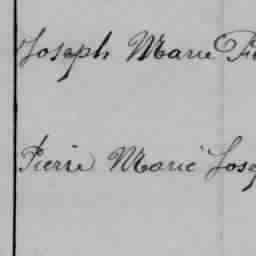 Joseph Marie Pi
Pierre Marie Jose